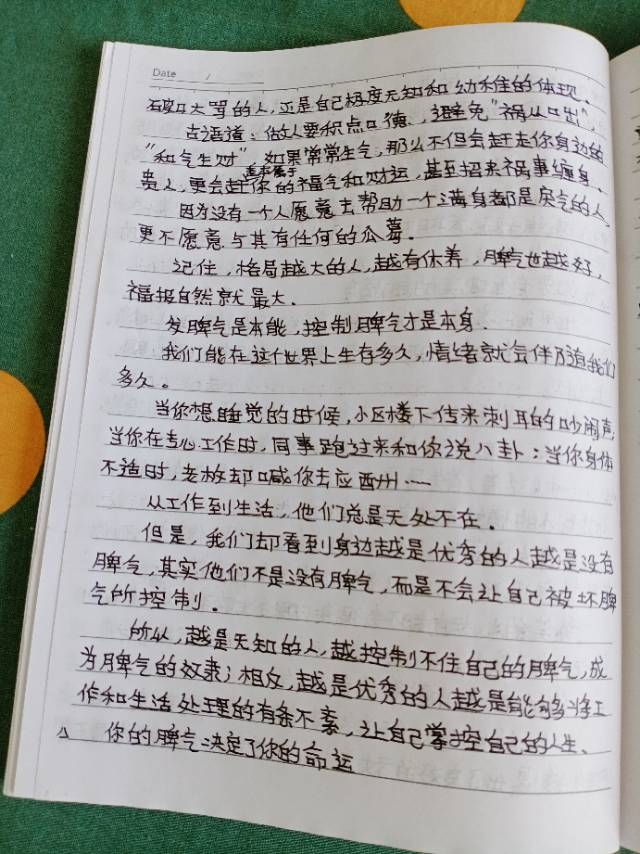 Date /
破口大骂的人,还是自己极度无知和幼稚的体现。
古语道:做人要积点口德,避免"祸从口出",
"和气生财",如果常常生气,那么不但会赶走你身边的
贵人,更会赶你的福气和财运,甚至招来祸事缠身。
本属于
因为没有一个人愿意去帮助一个满身都是戾气的人,
更不愿意与其有任何的瓜葛。
记住,格局越大的人,越有休养,脾气也越好,
福报自然就最大。
发脾气是本能,控制脾气才是本身。
我们能在这个世界上生存多久,情绪就会伴随我们
多久。
当你想睡觉的时候,小区楼下传来刺耳的吵闹声
当你在专心工作时,同事跑过来和你说八卦;当你身体
不适时,老板却喊你去应酬……
从工作到生活,他们总是无处不在。
但是,我们却看到身边越是优秀的人越是没有
脾气,其实他们不是没有脾气,而是不会让自己被坏脾
气所控制。
所以,越是无知的人,越控制不住自己的脾气,成
为脾气的奴隶;相反,越是优秀的人越是能够将工
作和生活处理的有条不紊,让自己掌控自己的人生、
△ 你的脾气决定了你的命运